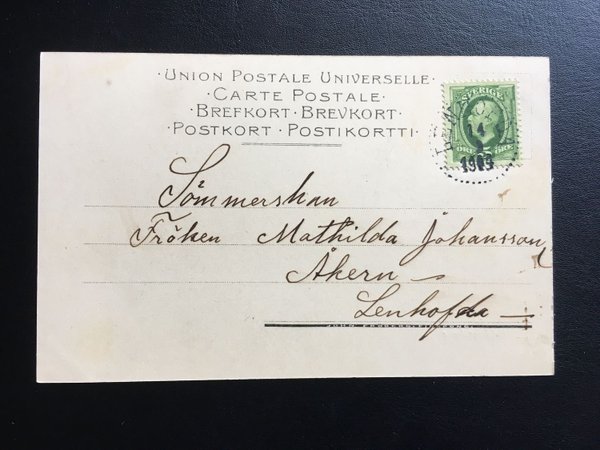 ·UNION POSTALE UNIVERSELLE·
·CARTE POSTALE·
·BREFKORT·BREVKORT·
·POSTKORT·POSTIKORTTI·
SVERIGE
14
ÖRE 5 ÖRE
Sömmerskan
Fröken Mathilda Johansson
Åkern
Lenhofda